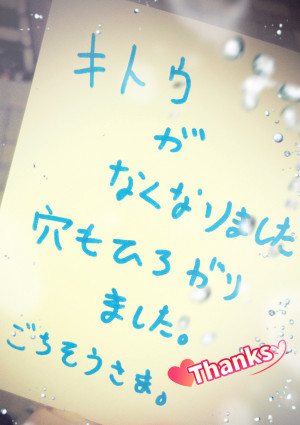 キトウ
が
なくなりました
穴もひろがり
ました。
ごちそうさま。
Thanks